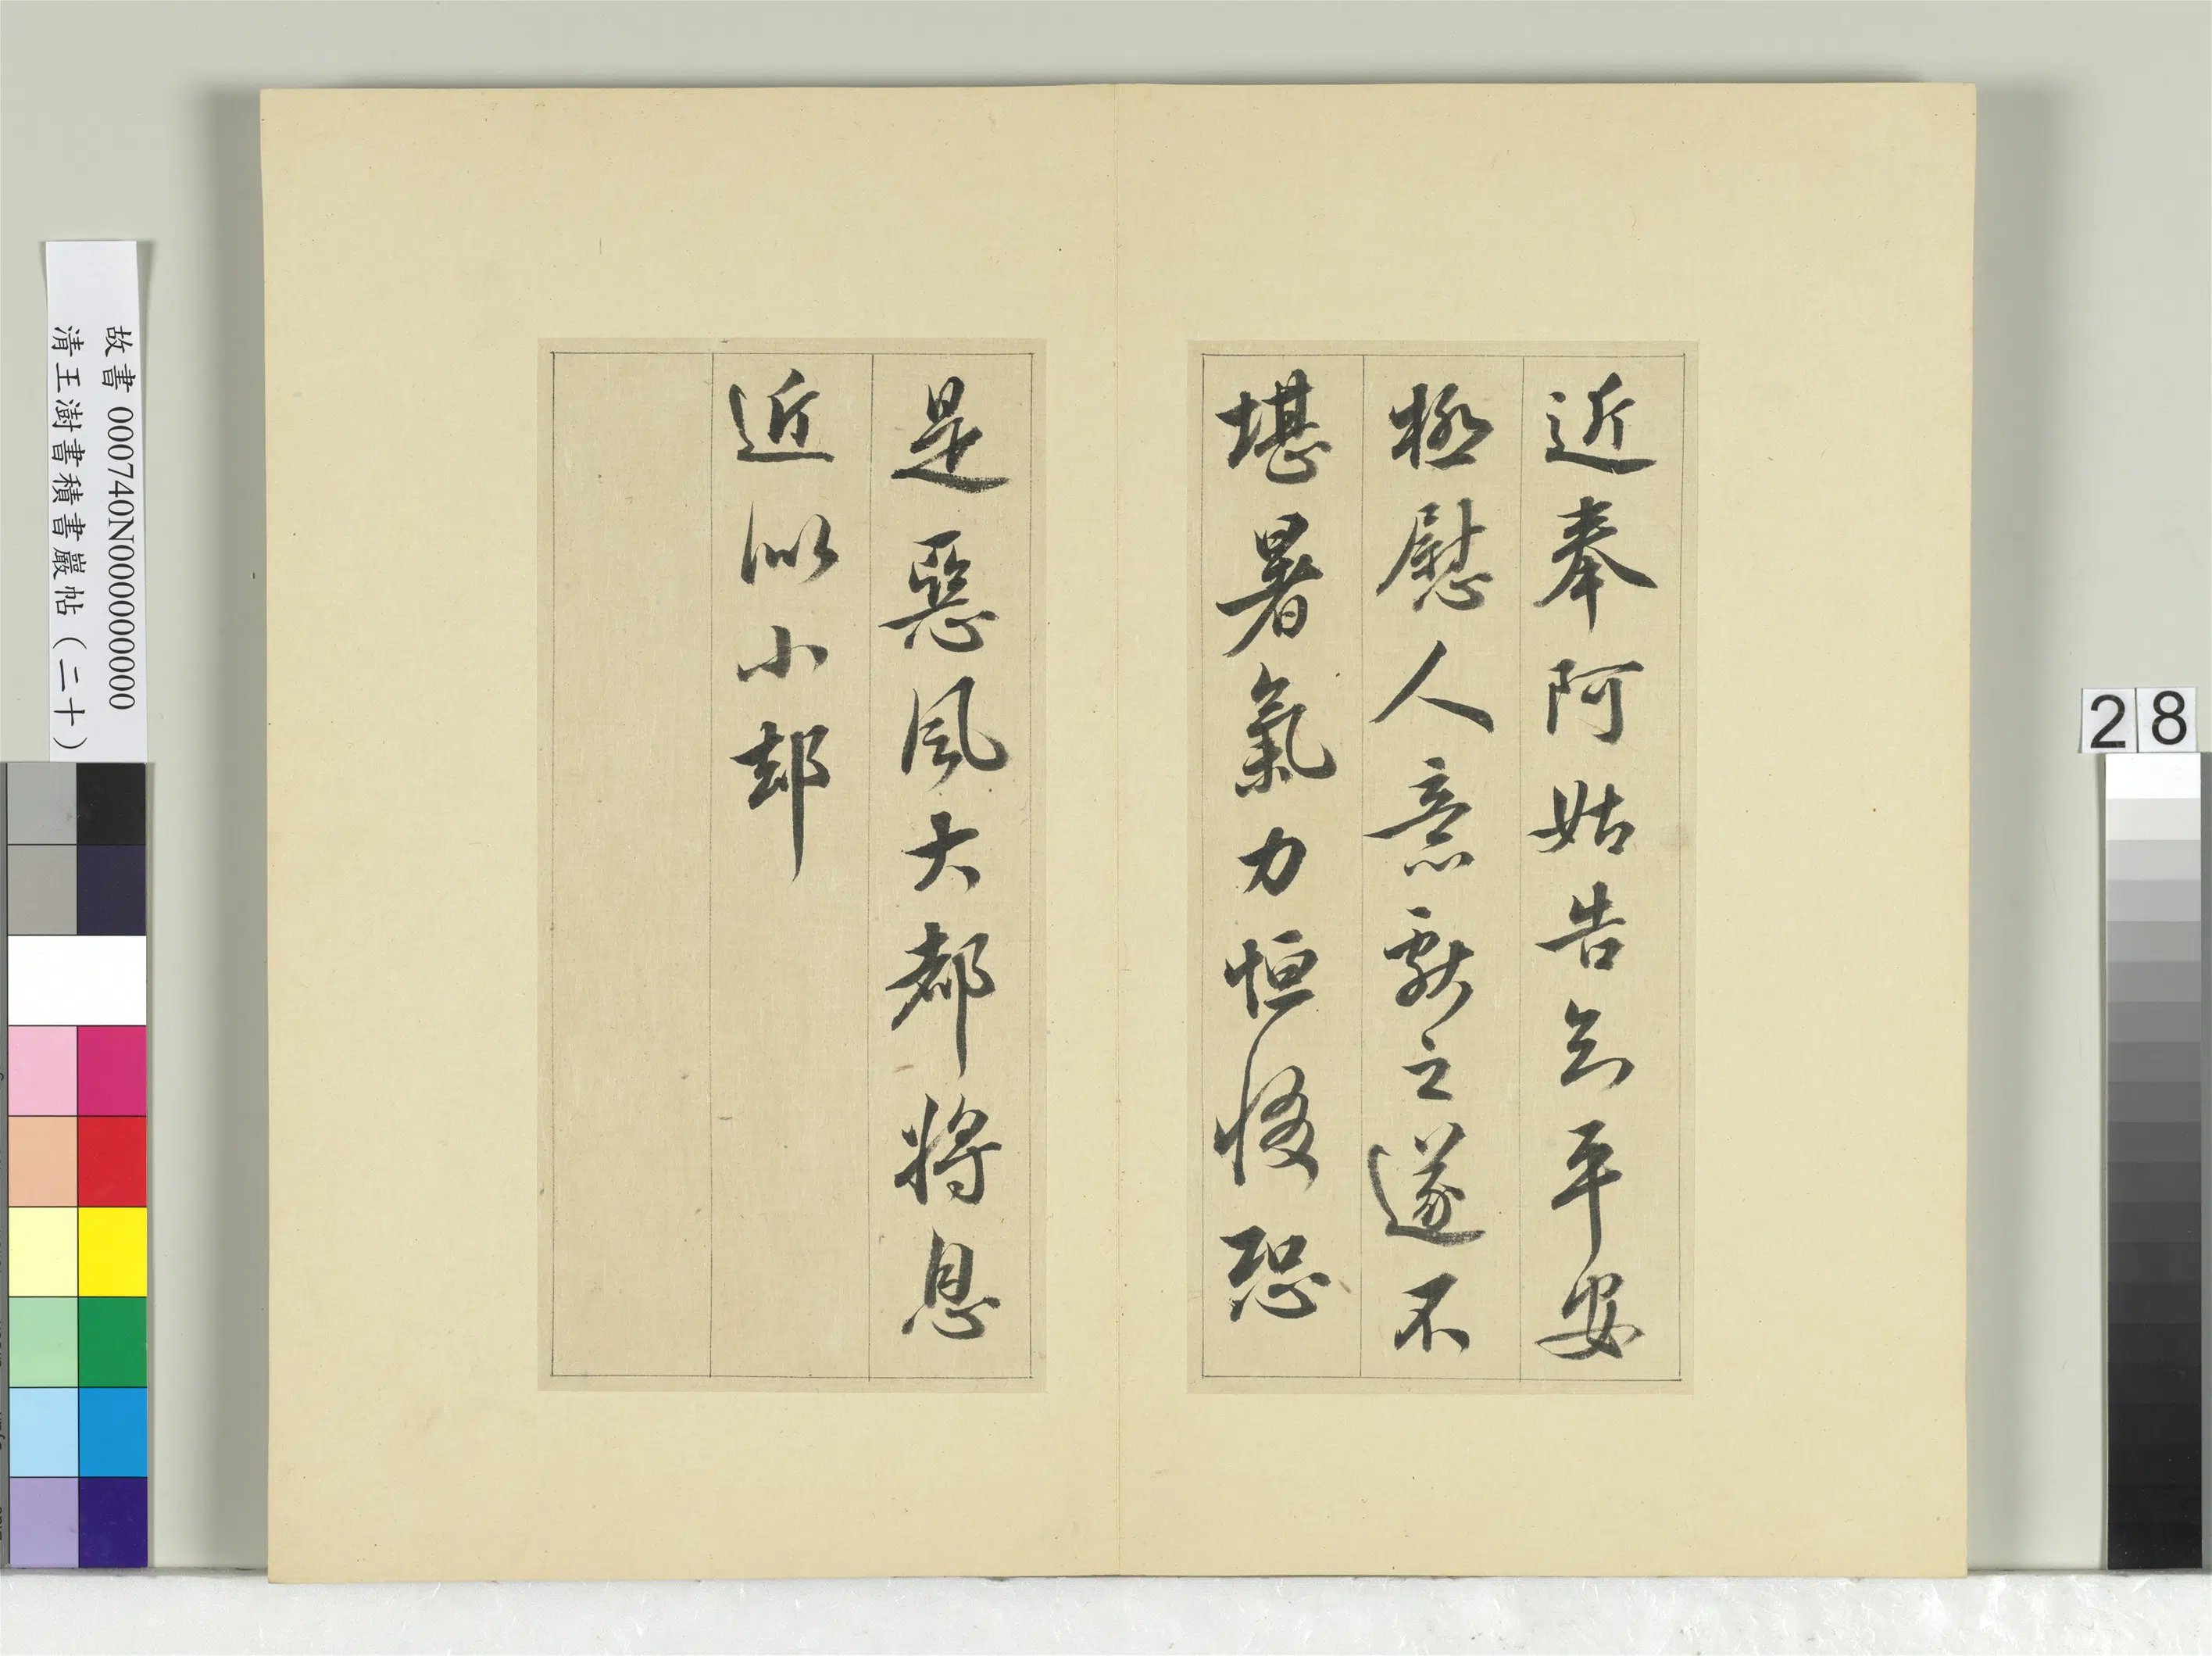 近奉阿姑告知平安
極慰人意獻之遂不
堪暑氣力恒惙恐
是惡風大都將息
近似小却
故書 000740N000000000
清王澍書積書巖帖(二十)
28